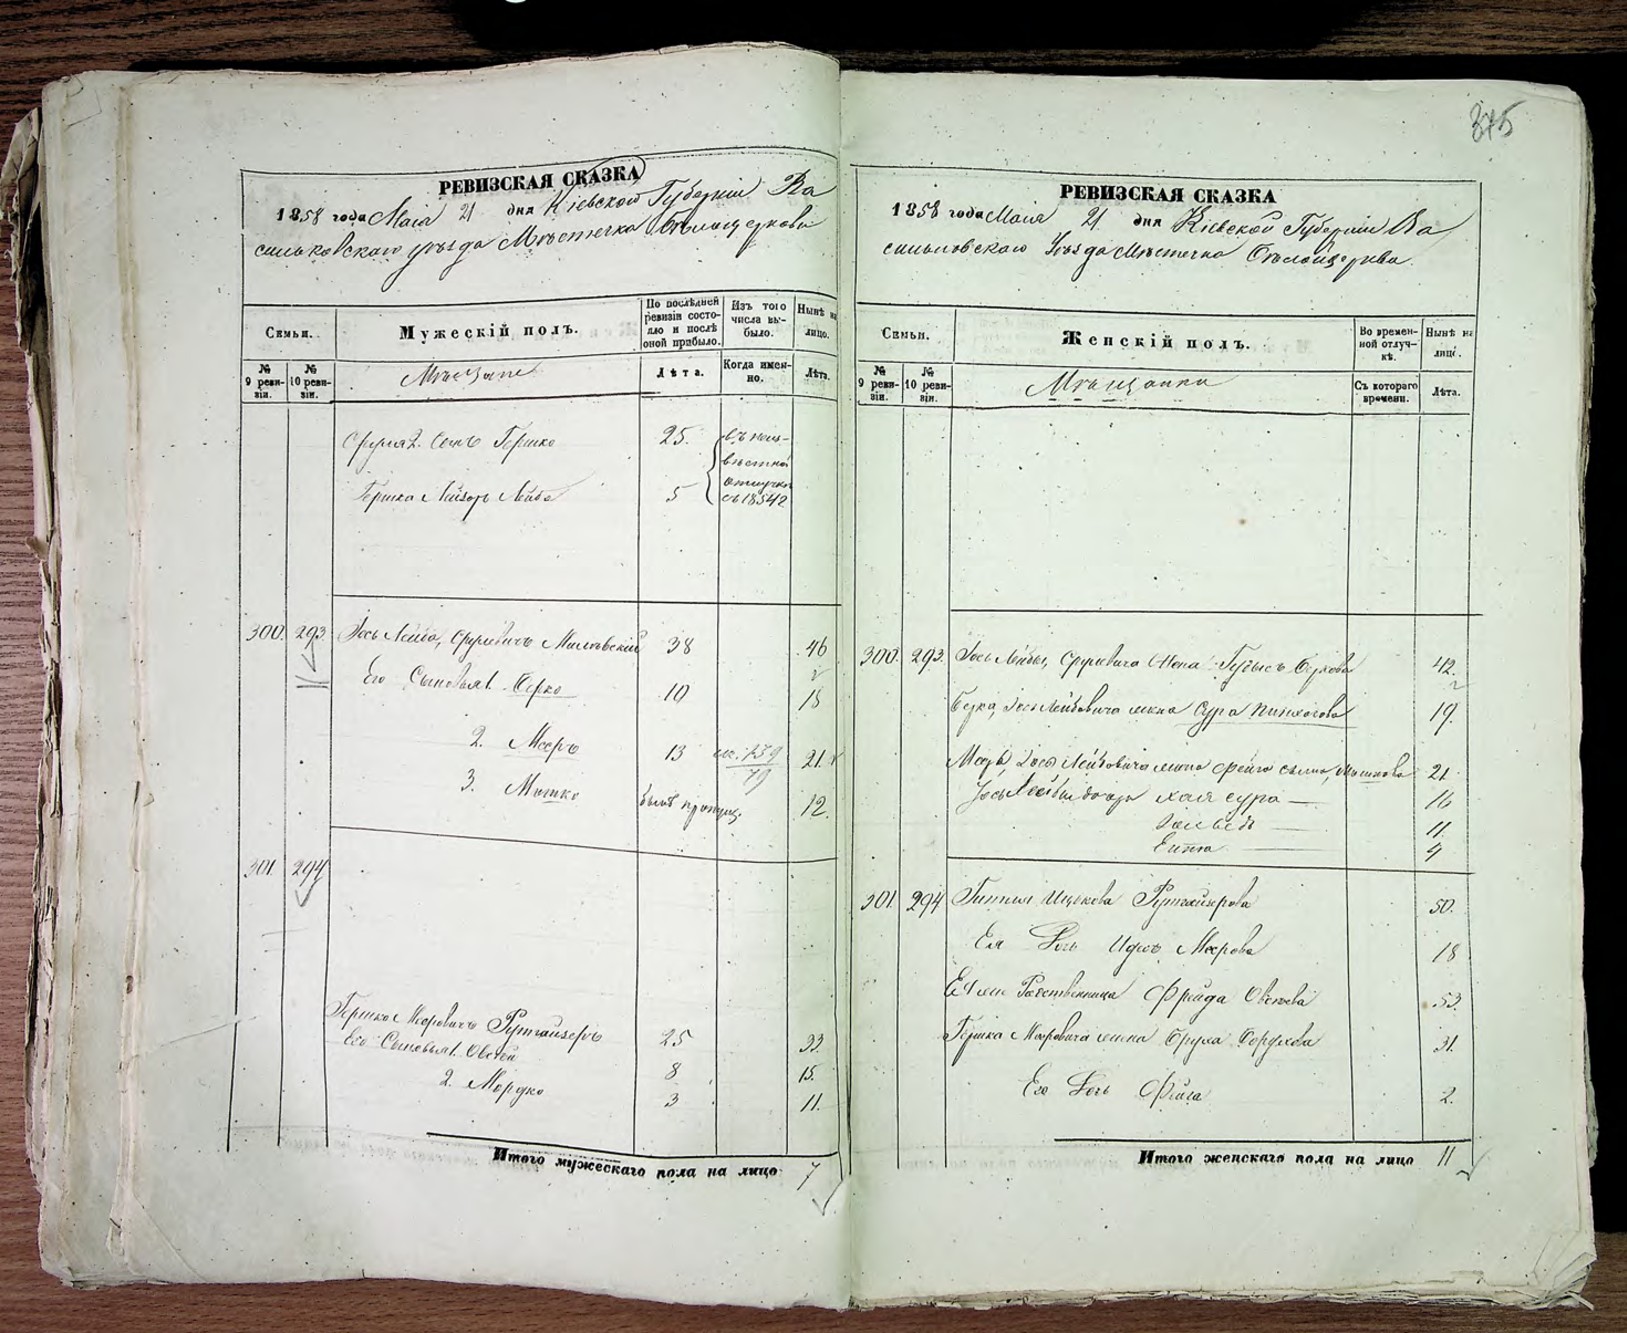 375
РЕВИЗСКАЯ СКАЗКА
1858 года Маія 21 дня Кіевской Губерніи Ва
сильковскаго уѣзда Мѣстечка Бѣлицеркви
Семьи.
Мужескій полъ.
По послѣдней ревизіи состояло и послѣ оной прибыло.
Изъ того числа выбыло.
Нынѣ на лицо.
№ 9 ревизіи.
№ 10 ревизіи.
Мѣщане
Лѣта.
Когда именно.
Лѣта.
Сруля 2. Сынъ Гершко 25.
въ неиз-
вѣстной
отлучкѣ
съ 1854 г
Гершка Лейзоръ Лейба 5
300. 293. Іось Лейба, Срулевичъ 38 46
Его Сыновья 1. Берко 10 18
2. Мееръ 13 21.
3. Мошко былъ пропущ. 12.
301. 294
Гершко Мееровичъ 25 33.
Его Сыновья 1. Овсей 8 15.
2. Мордко 3 11.
Итого мужескаго пола на лицо 7
РЕВИЗСКАЯ СКАЗКА
1858 года Маія 21 дня Кіевской Губерніи Ва
сильковскаго Уѣзда Мѣстечка
Семьи.
Женскій полъ.
Во временной отлучкѣ.
Нынѣ на лицо.
№ 9 ревизіи.
№ 10 ревизіи.
Мѣщанки
Съ котораго времени.
Лѣта.
300. 293. Іось Лейбы, Срулевича Жена Беркова 42.
Берка, Іось Лейбовича жена Сура 19.
Меера Іось Лейбовича жена Мошкова 21.
Іось Лейбы дочери Хая Сура — 16
11.
301. 294 Ицкова 50.
Ея Дочь Меерова 18
Ея же Родственница Фрейда Овсеева 53.
Гершка Мееровича жена Бруха 31.
Его Дочь Фейга 2.
Итого женскаго пола на лицо 11